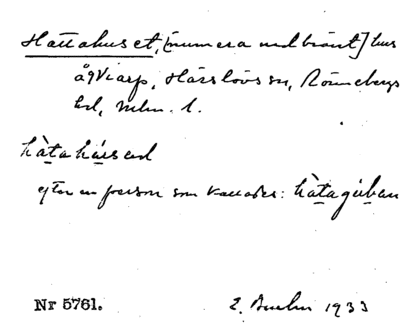 Hattahuset, [numera nedbränt] hus
å Åkarp, Härslövs sn, Rönnebergs
hd, Mlm. l.
hàtahúsəd
efter en person som kallades: hàtagúban
Nr 5761.
2. 1933